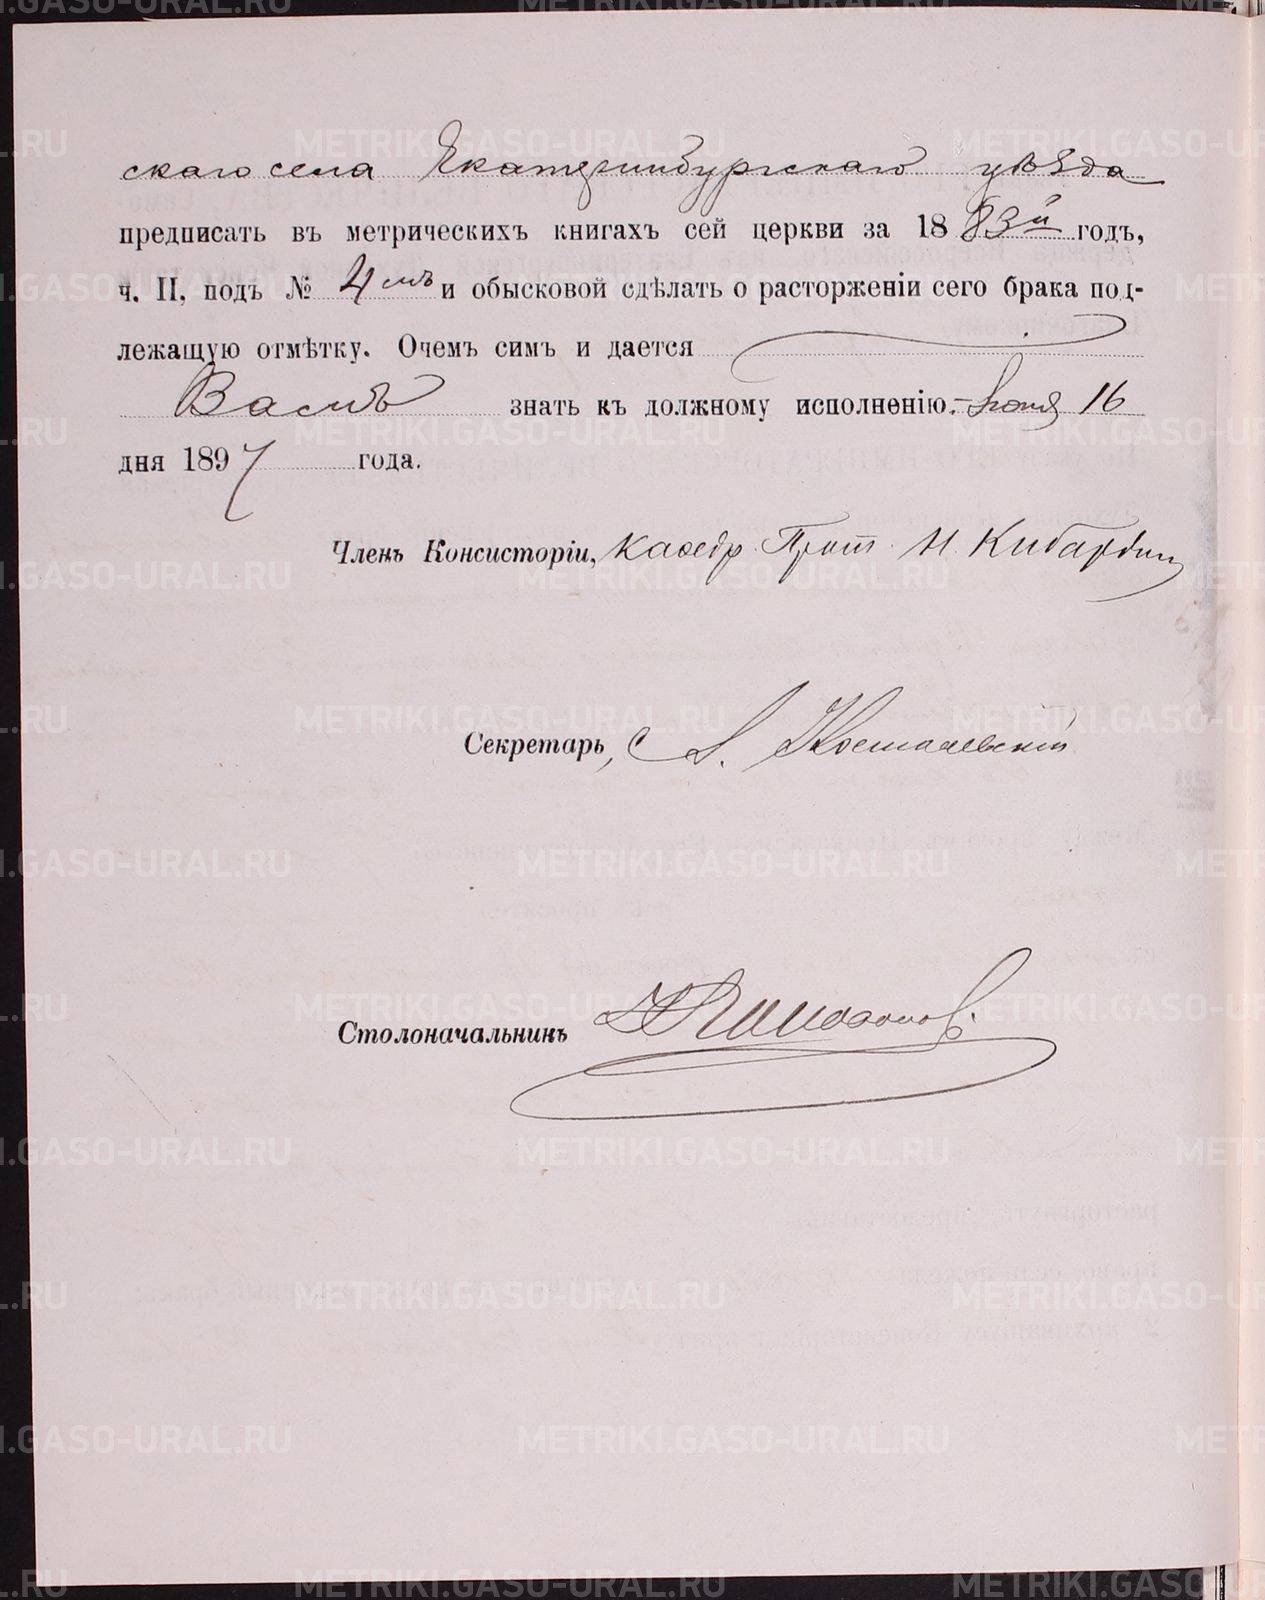 скаго села Екатеринбургскаго уѣзда
предписать въ метрическихъ книгахъ сей церкви за 1883й годъ,
ч. II, подъ № 4мъ и обысковой сдѣлать о расторженіи сего брака под-
лежащую отмѣтку. Очемъ симъ и дается
Вамъ знать къ должному исполненію. Іюня 16
дня 1897 года.
Членъ Консисторіи, Каѳедр. Прот. Н. Кибардин
Секретарь, А.
Столоначальникъ
METRIKI.GASO-URAL.RU